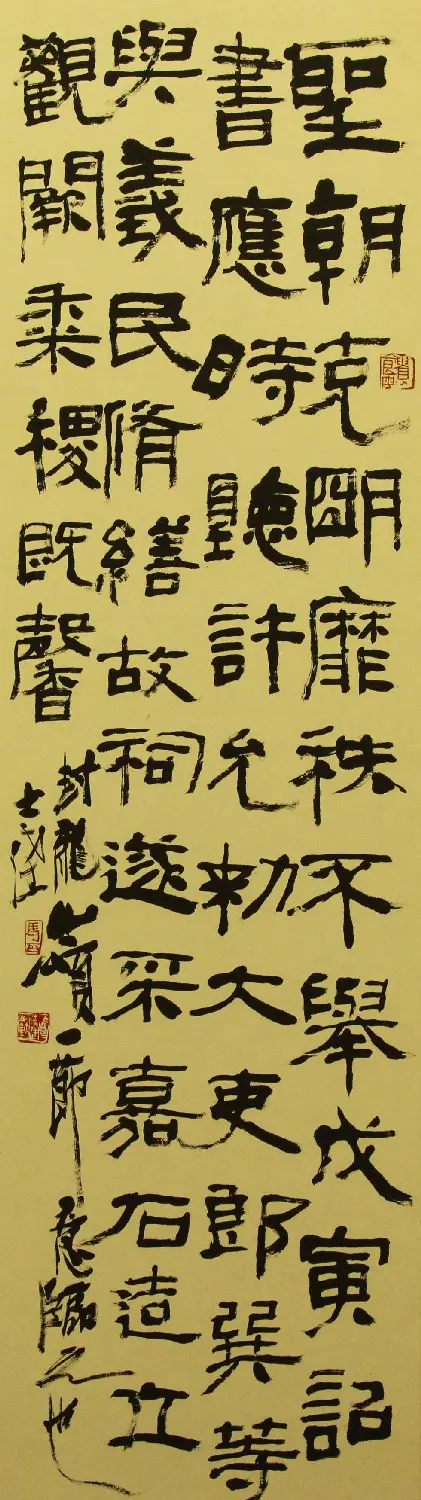 聖朝克明靡秩不舉戊寅詔
書應時聽許允勑大吏郎巽等
與義民脩繕故祠遂采嘉石造立
觀闕黍稷既馨
封龍山頌一節意臨之也